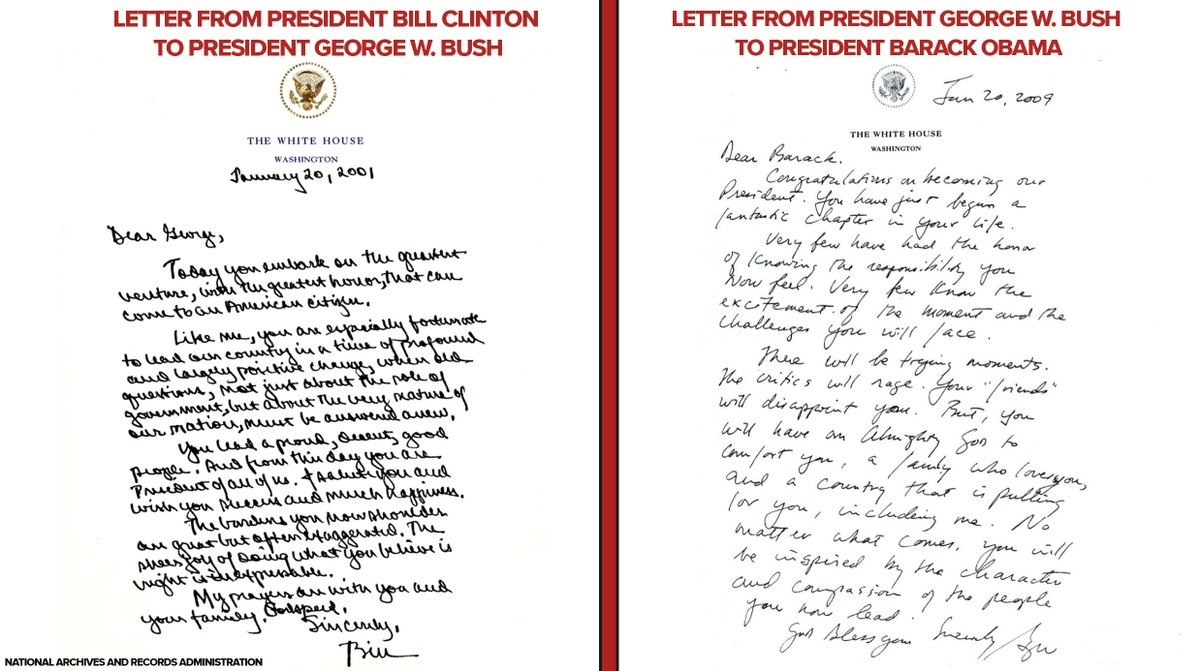 LETTER FROM PRESIDENT BILL CLINTON
TO PRESIDENT GEORGE W. BUSH
THE WHITE HOUSE
WASHINGTON
January 20, 2001
Dear George,
Today you embark on the greatest
venture, with the greatest honor, that can
come to an American citizen.
Like me, you are especially fortunate
to lead our country in a time of profound
and largely positive change, when old
questions, not just about the role of
government, but about the very nature of
our nation, must be answered anew.
You lead a proud, decent, good
people. And from this day you are
President of all of us. I salute you and
wish you success and much happiness.
The burdens you now shoulder
are great but often exaggerated. The
sheer joy of doing what you believe is
right is inexpressible.
My prayers are with you and
your family. Godspeed.
Sincerely,
Bill
NATIONAL ARCHIVES AND RECORDS ADMINISTRATION
LETTER FROM PRESIDENT GEORGE W. BUSH
TO PRESIDENT BARACK OBAMA
Jan 20, 2009
THE WHITE HOUSE
WASHINGTON
Dear Barack,
Congratulations on becoming our
President. You have just begun a
fantastic chapter in your life.
Very few have had the honor
of knowing the responsibility you
now feel. Very few know the
excitement of the moment and the
challenges you will face.
There will be trying moments.
The critics will rage. Your "friends"
will disappoint you. But, you
will have an Almighty God to
comfort you, a family who loves you,
and a country that is pulling
for you, including me. No
matter what comes, you will
be inspired by the character
and compassion of the people
you now lead.
God bless you
Sincerely,